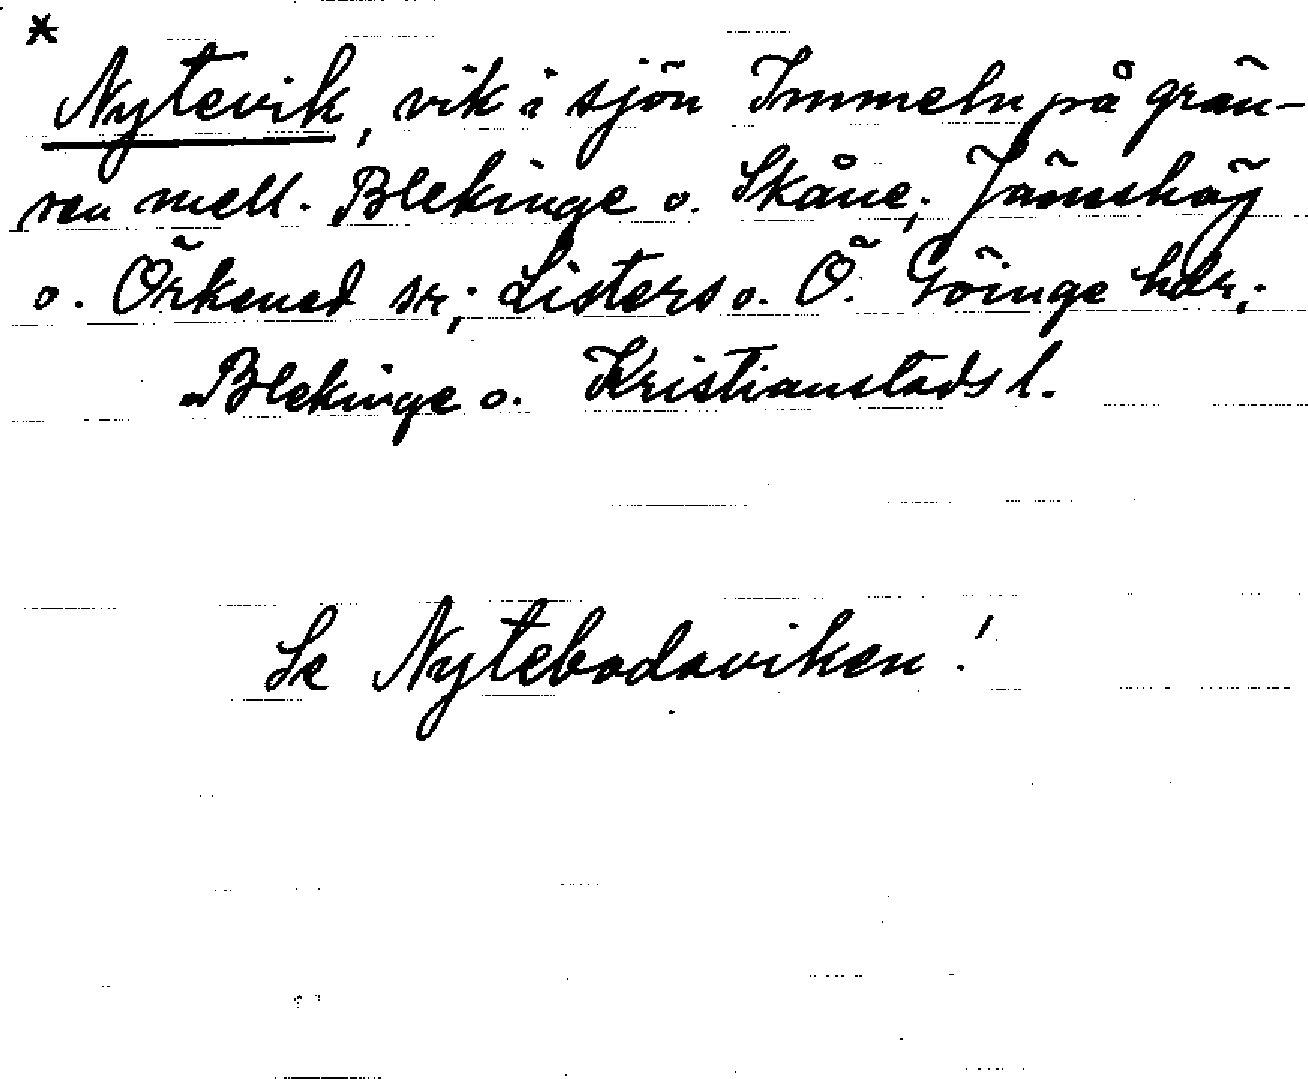 *
Nytevik, vik i sjön Immeln på grän-
sen mell. Blekinge o. Skåne; Jämshög
o. Örkened sr; Listers o. Ö. Göinge hdr;
Blekinge o. Kristianstads l.
Se Nytebodaviken!